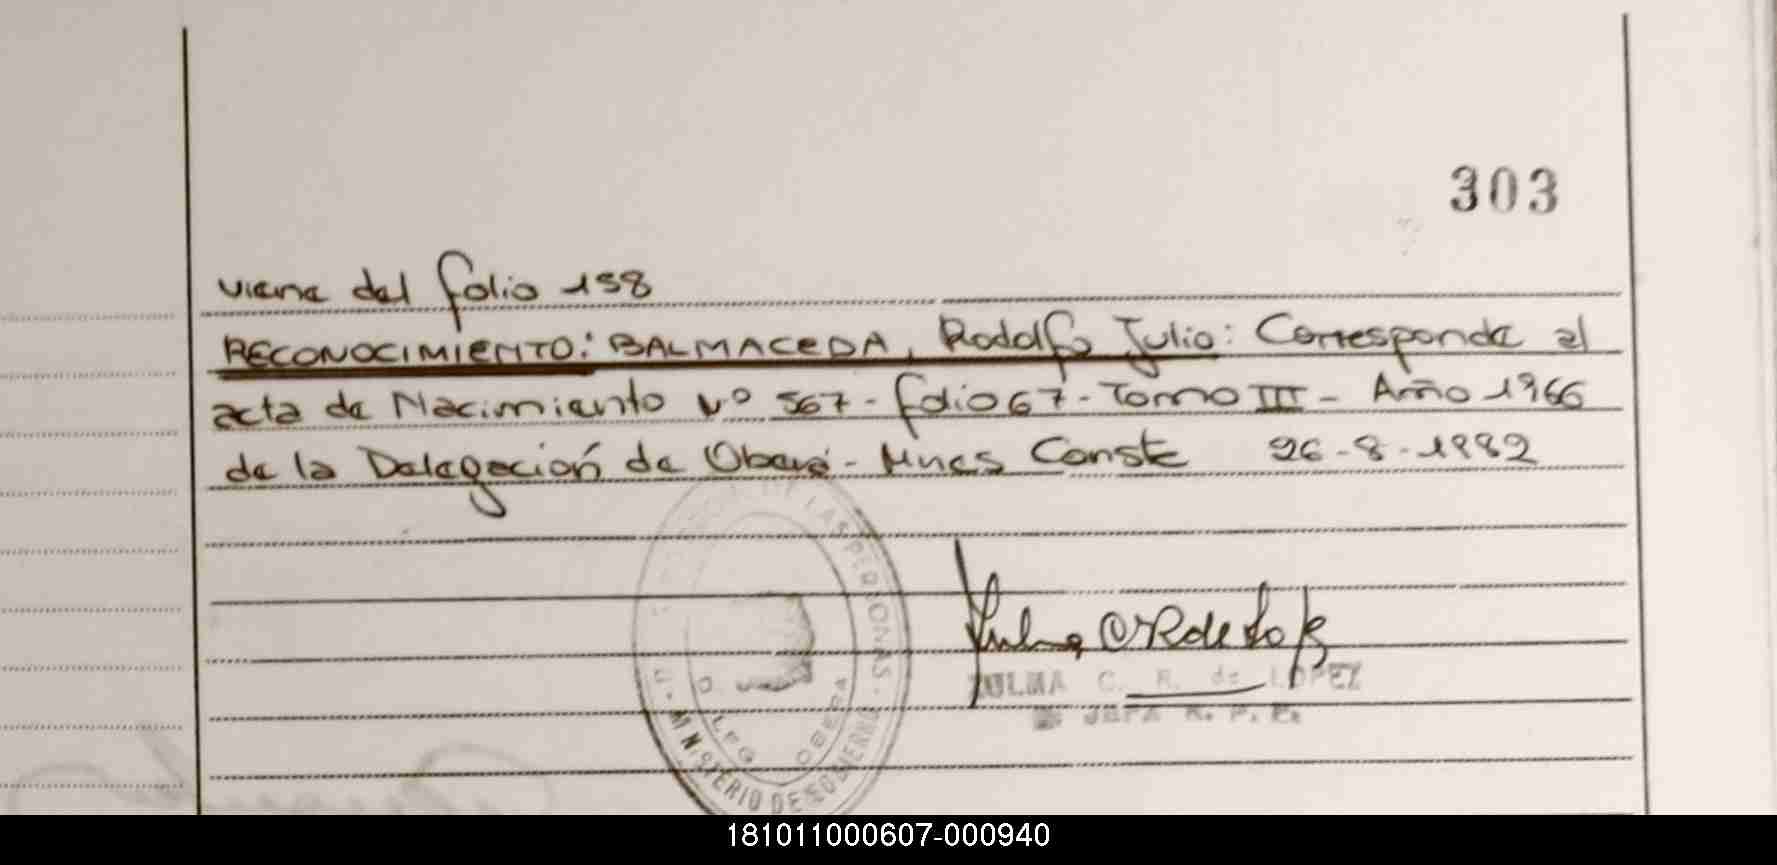 303
viene del folio 158
RECONOCIMIENTO: BALMACEDA, Rodolfo Julio: Corresponde al
acta de Nacimiento Nº 567 - folio 67 - Tomo III - Año 1966
de la Delegación de Oberá - Mnes Conste 26-8-1982
LAS PERSONAS
MINISTERIO DE GOBIERNO
OBERA
ZULMA C. R. de LOPEZ
JEFA R. P. P.
181011000607-000940